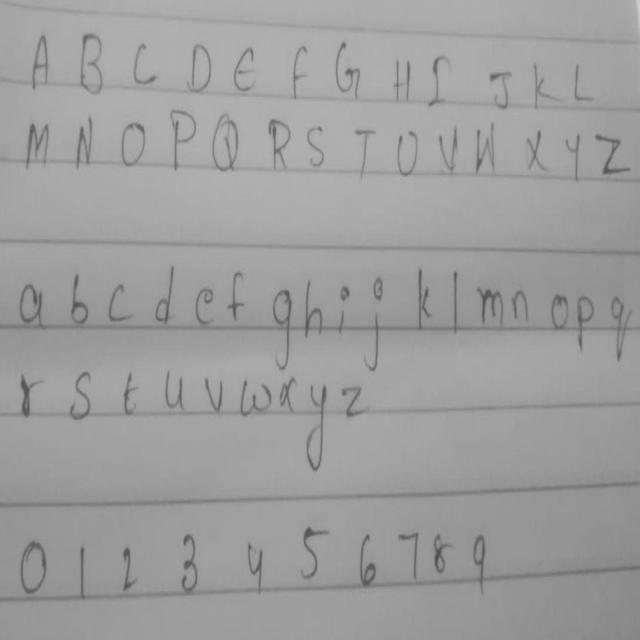 A B C D E F G H I J K L
M N O P Q R S T U V W X Y Z
a b c d e f g h i j k l m n o p q
r s t u v w x y z
0 1 2 3 4 5 6 7 8 9